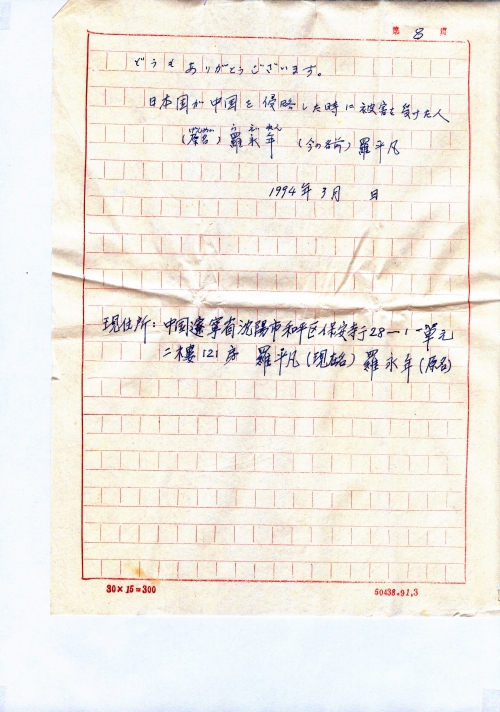 第 8 頁
どうも ありがとうございます。
日本国が中国を侵略した時に被害を受けた人
(原名) 羅永年 (今の名前) 羅平凡
1994年3月 日
現住所: 中国遼寧省沈陽市和平区保安寺子28-1-1單元
二樓121房 羅平凡(現在名) 羅永年(原名)
30×15=300
50438.91.3